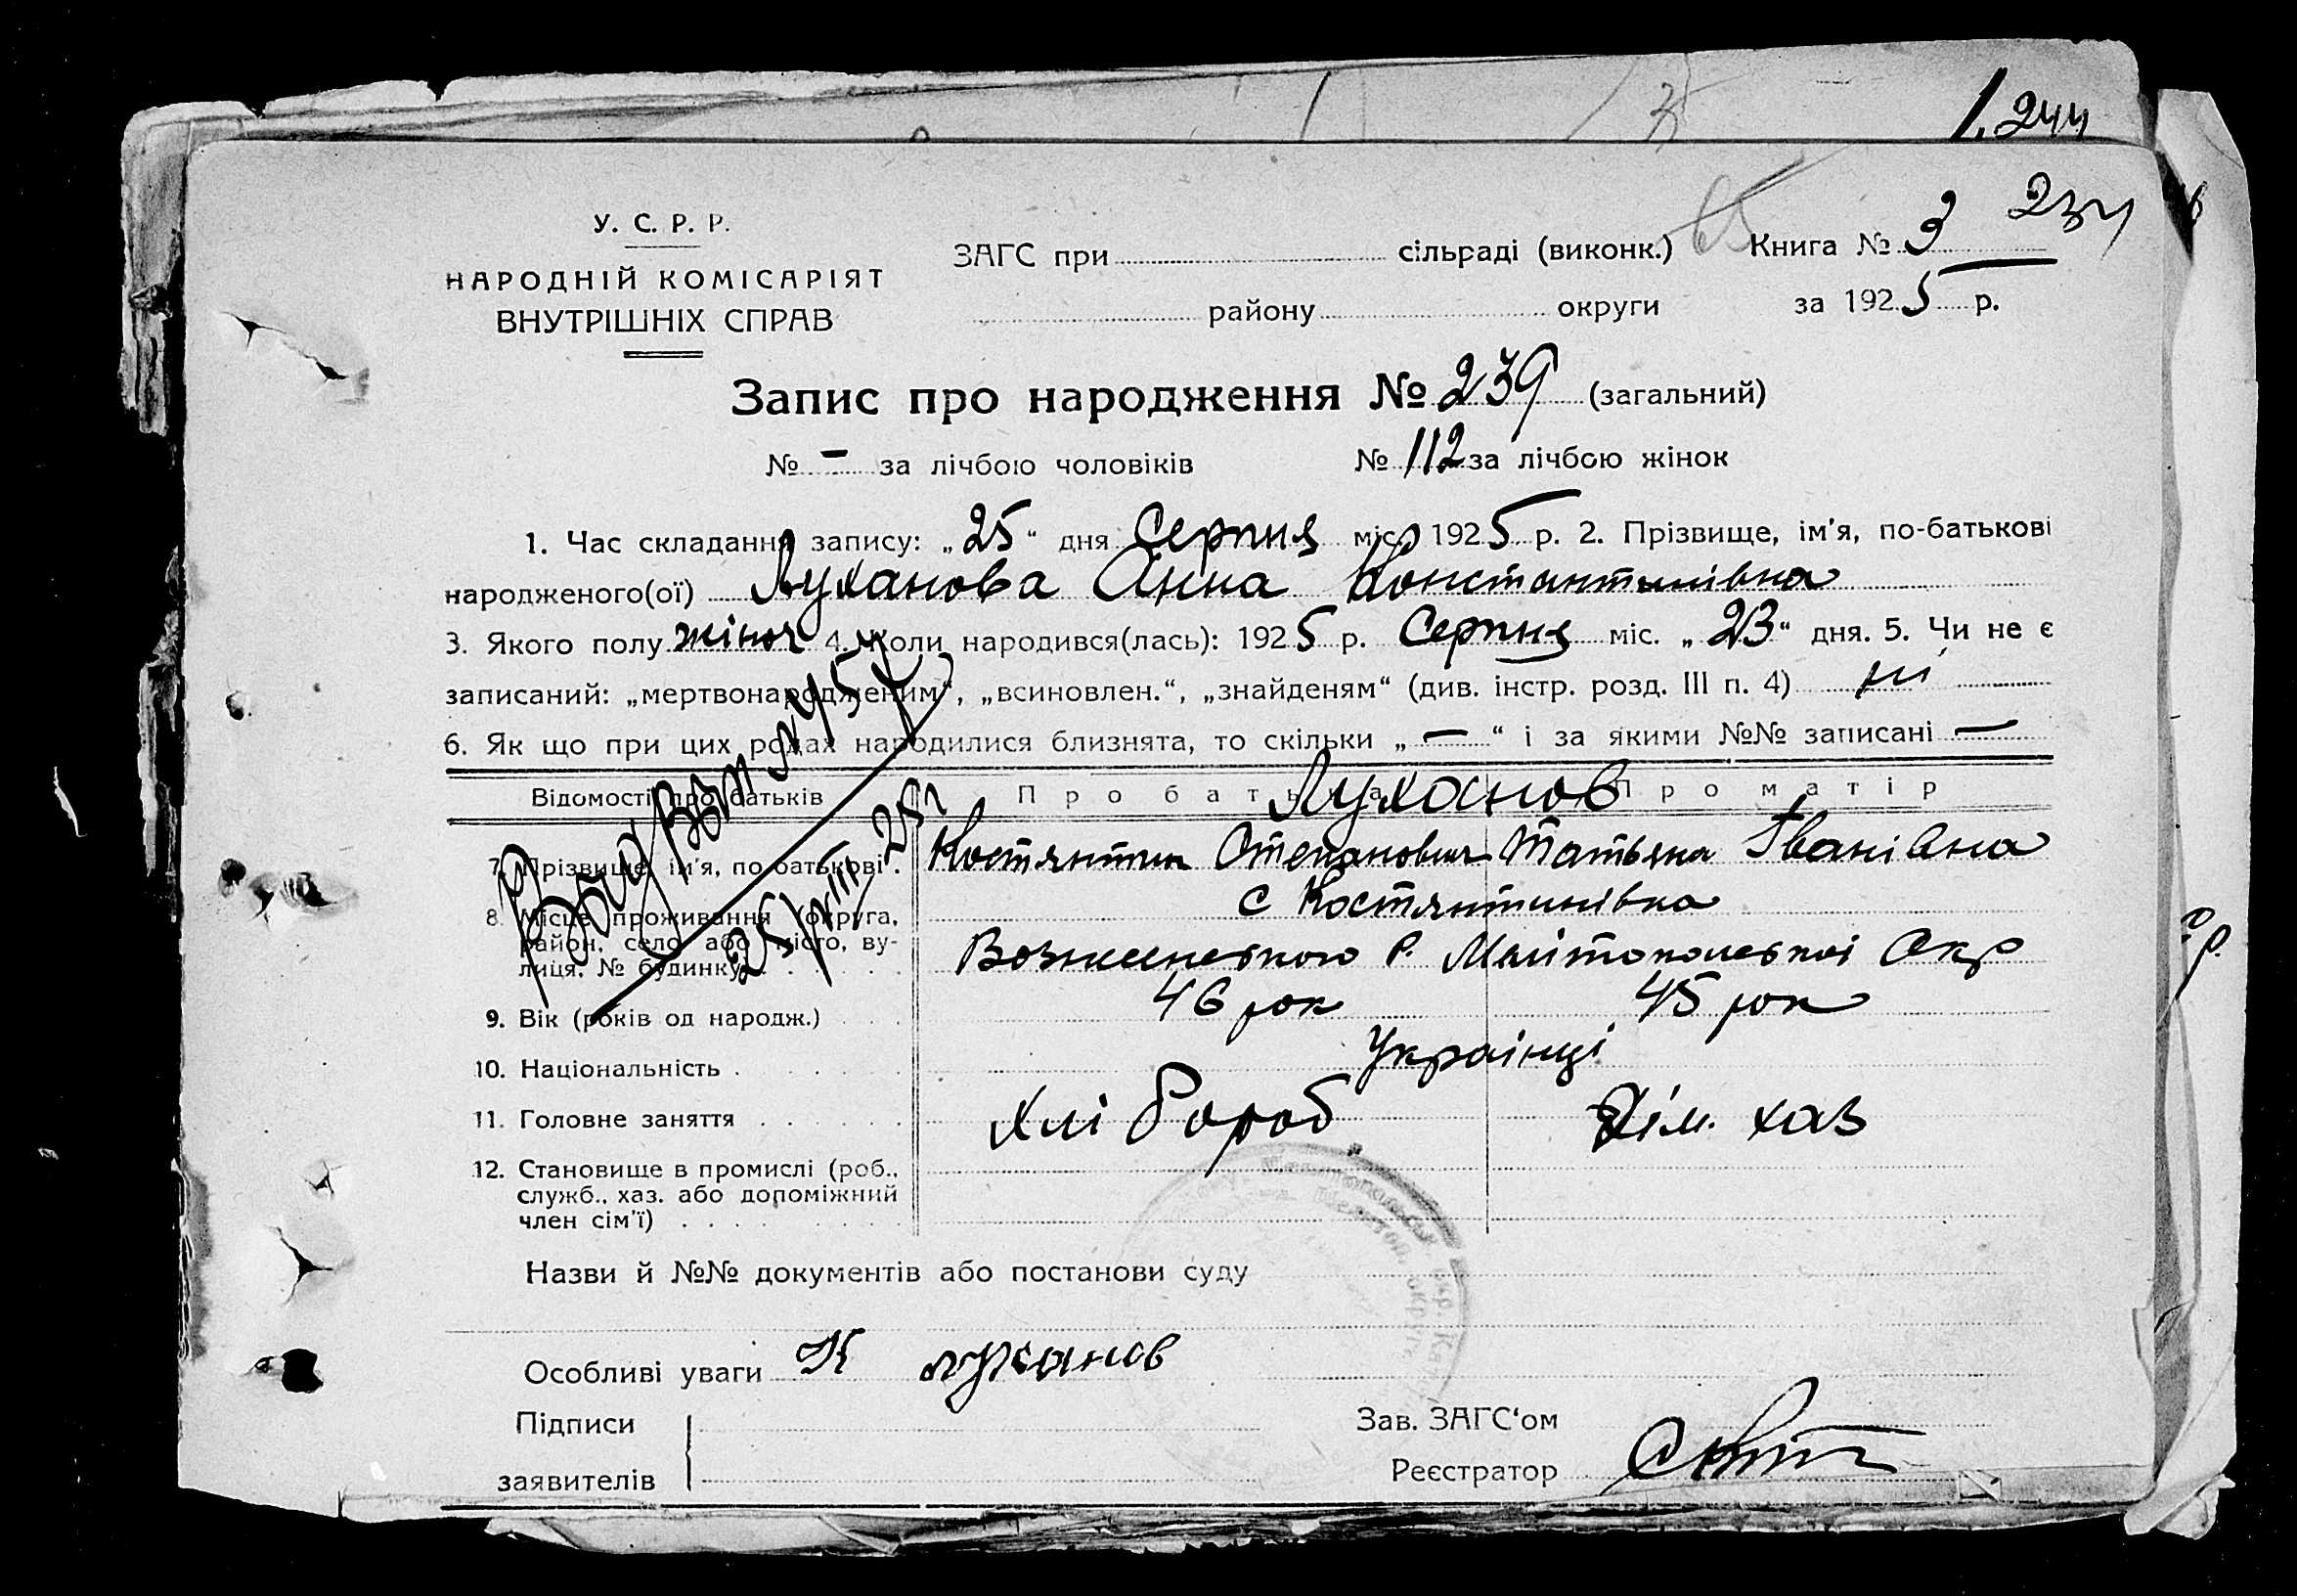 1. 244
234
У. С. Р. Р.
НАРОДНІЙ КОМІСАРІЯТ
ВНУТРІШНІХ СПРАВ
ЗАГС при сільраді (виконк.) Книга № 3
району округи за 1925 р.
Запис про народження № 239 (загальний)
№ — за лічбою чоловіків № 112 за лічбою жінок
1. Час складання запису: „25“ дня Серпня міс. 1925 р. 2. Прізвище, ім'я, по-батькові
народженого(ої) Луханова Анна Константинівна
3. Якого полу жіноч 4. Коли народився(лась): 1925 р. Серпня міс. „23“ дня. 5. Чи не є
записаний: „мертвонародженим“, „всиновлен.“, „знайденям“ (див. інстр. розд. III п. 4) ні
6. Як що при цих родах народилися близнята, то скільки „—“ і за якими №№ записані —
Відомості про батьків Про батька Про матір
Луханов
7. Прізвище, ім'я, по батькові. Костянтин Степанович Татьяна Іванівна
8. Місце проживання (округа, с Костянтинівка
район, село або місто, ву-
лиця, № будинку) Вознесенского Р. Мелітопольскоі Окр
9. Вік (років од народж.) 46 рок 45 рок
10. Національність Украінці
11. Головне заняття Хліббороб Дім. хаз
12. Становище в промислі (роб.,
служб., хаз. або допоміжний
член сім'ї)
25/VIII 25 г
Назви й №№ документів або постанови суду
Особливі уваги К Луханов
Підписи
заявителів
Зав. ЗАГС‘ом
Реєстратор